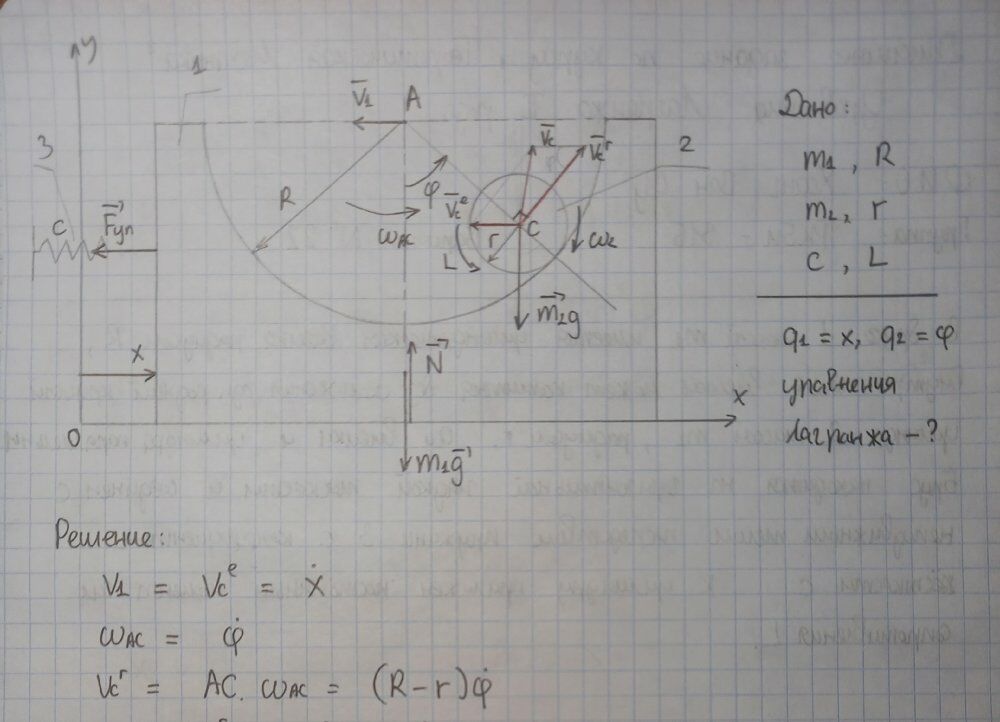 y
1
V̅₁
A
3
R
φ
V̅c
V̅cʳ
2
c
F⃗уп
ωAC
V̅cᵉ
r
C
ωc
L
m₂g⃗
x
N⃗
x
0
m₁g⃗
Дано:
m₁, R
m₂, r
c, L
q₁ = x, q₂ = φ
уравнения
Лагранжа – ?
Решение:
V₁ = Vcᵉ = ẋ
ωAC = φ̇
Vcʳ = AC · ωAC = (R – r)φ̇